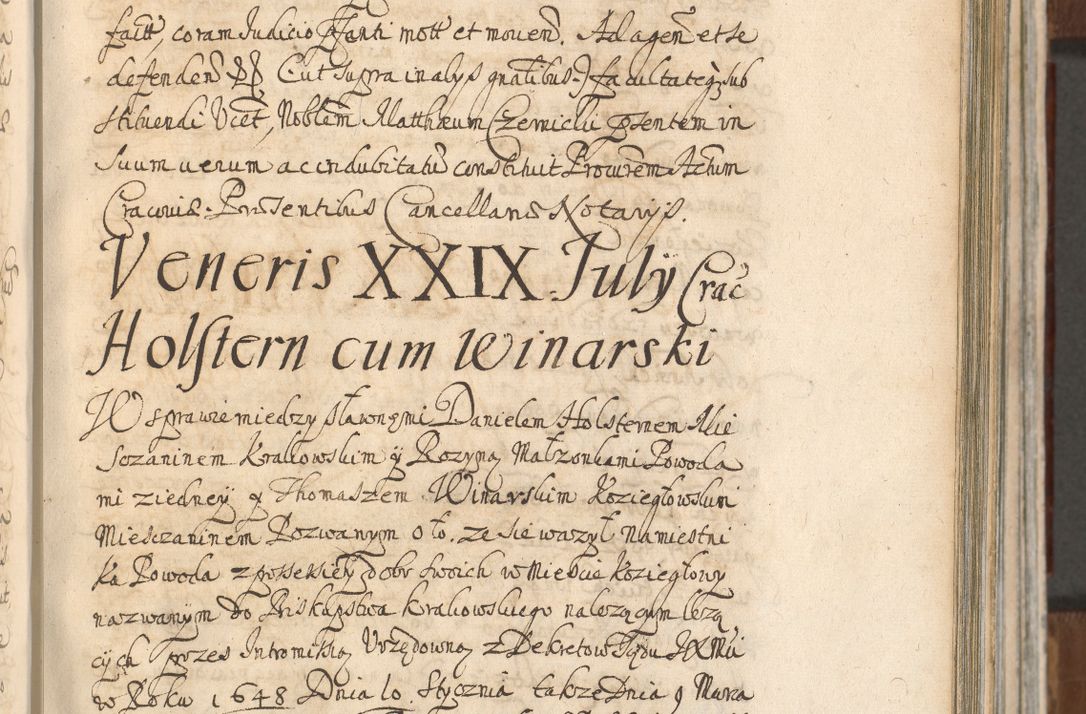 factt, coram Judicio ꝑfanti mott et mouen̄. Ad agen̄ et se
defenden̄ Cut supra in alys gnalibus) facultateqꝫ sub
stituendi Vcet, Noblem Matthæum Czernicki pꝛsentem in
suum uerum ac indubitatū constituit Procurem Actum
Cracouiæ. Præsentibus Cancellariæ Notaryjs.
Veneris XXIX July Crac
Holstern cum Winarski
W sprawie miedzy sławnęmi Danielem Holsternem Mie
sczaninem Krakowskim y Rozyną Małzonkami Powoda
mi ziedney y Thomaszem Winarskim Koziegłowskim
Miesczaninem Pozwanym o to. ze sie wazył Namiestni
ka Powoda z possessiey dobr swoich w Miescie Koziegłowy
nazwanym do Biskupstwa Krakowskiego nalezącym lezą
cych przes Intromissią Urzędowną z Dekretow Sądu JXMci
w Roku 1648 Dnia 10. Stycznia takze Dnia 9 Marca